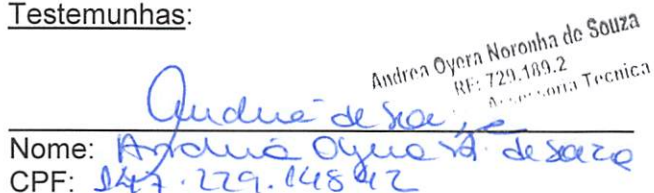 Testemunhas:
Andrea Oyera Noronha de Souza
RF: 729.189.2
Assessoria Tecnica
Nome: Andrea Oyera N. de Souza
CPF: 147.229.148 42